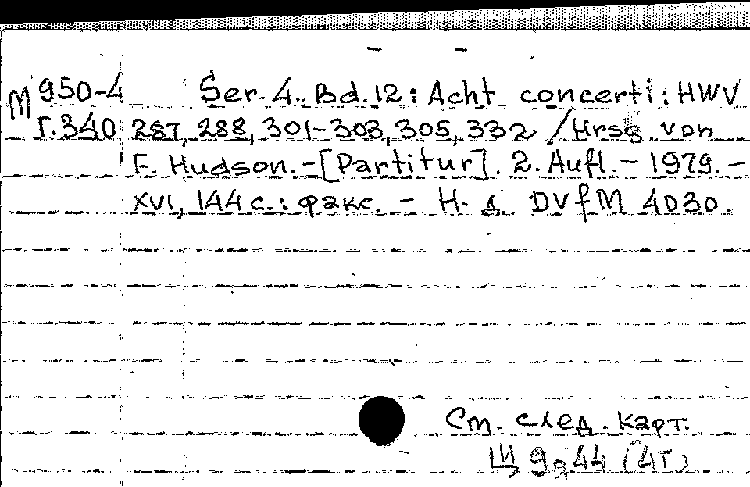 М 950-4 Ser. 4. Bd. 12: Acht concerti: HWV
Г.340 287, 288, 301-303, 305, 332 / Hrsg. von
F. Hudson. - [Partitur]. 2. Aufl. - 1979. -
XVI, 144 с.: факс. - Н. д. DVfM 4030.
См. след. карт.